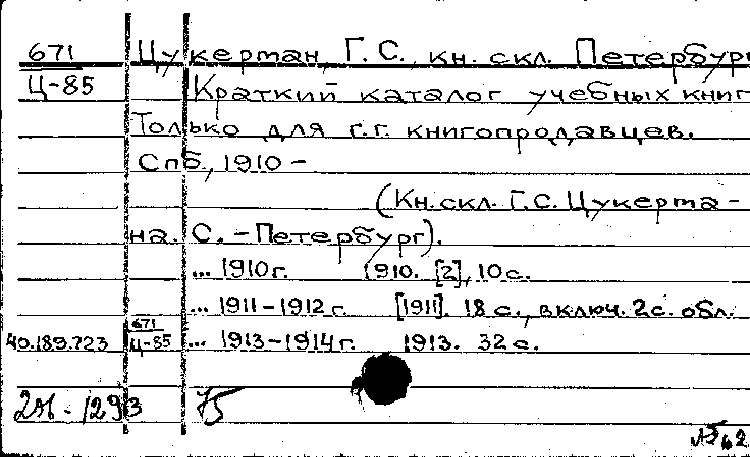 671 Цукерман, Г. С., кн. скл. Петербург
Ц-85 Краткий каталог учебных книг
Только для г.г. книгопродавцев.
Спб, 1910 -
(Кн. скл. Г. С. Цукерма -
на. С. - Петербург).
... 1910 г. 1910. [2], 10 с.
... 1911-1912 г. [1911]. 18 с., включ. 2 с. обл.
671
40.189.723 Ц-85 ... 1913-1914 г. 1913. 32 с.
75
62